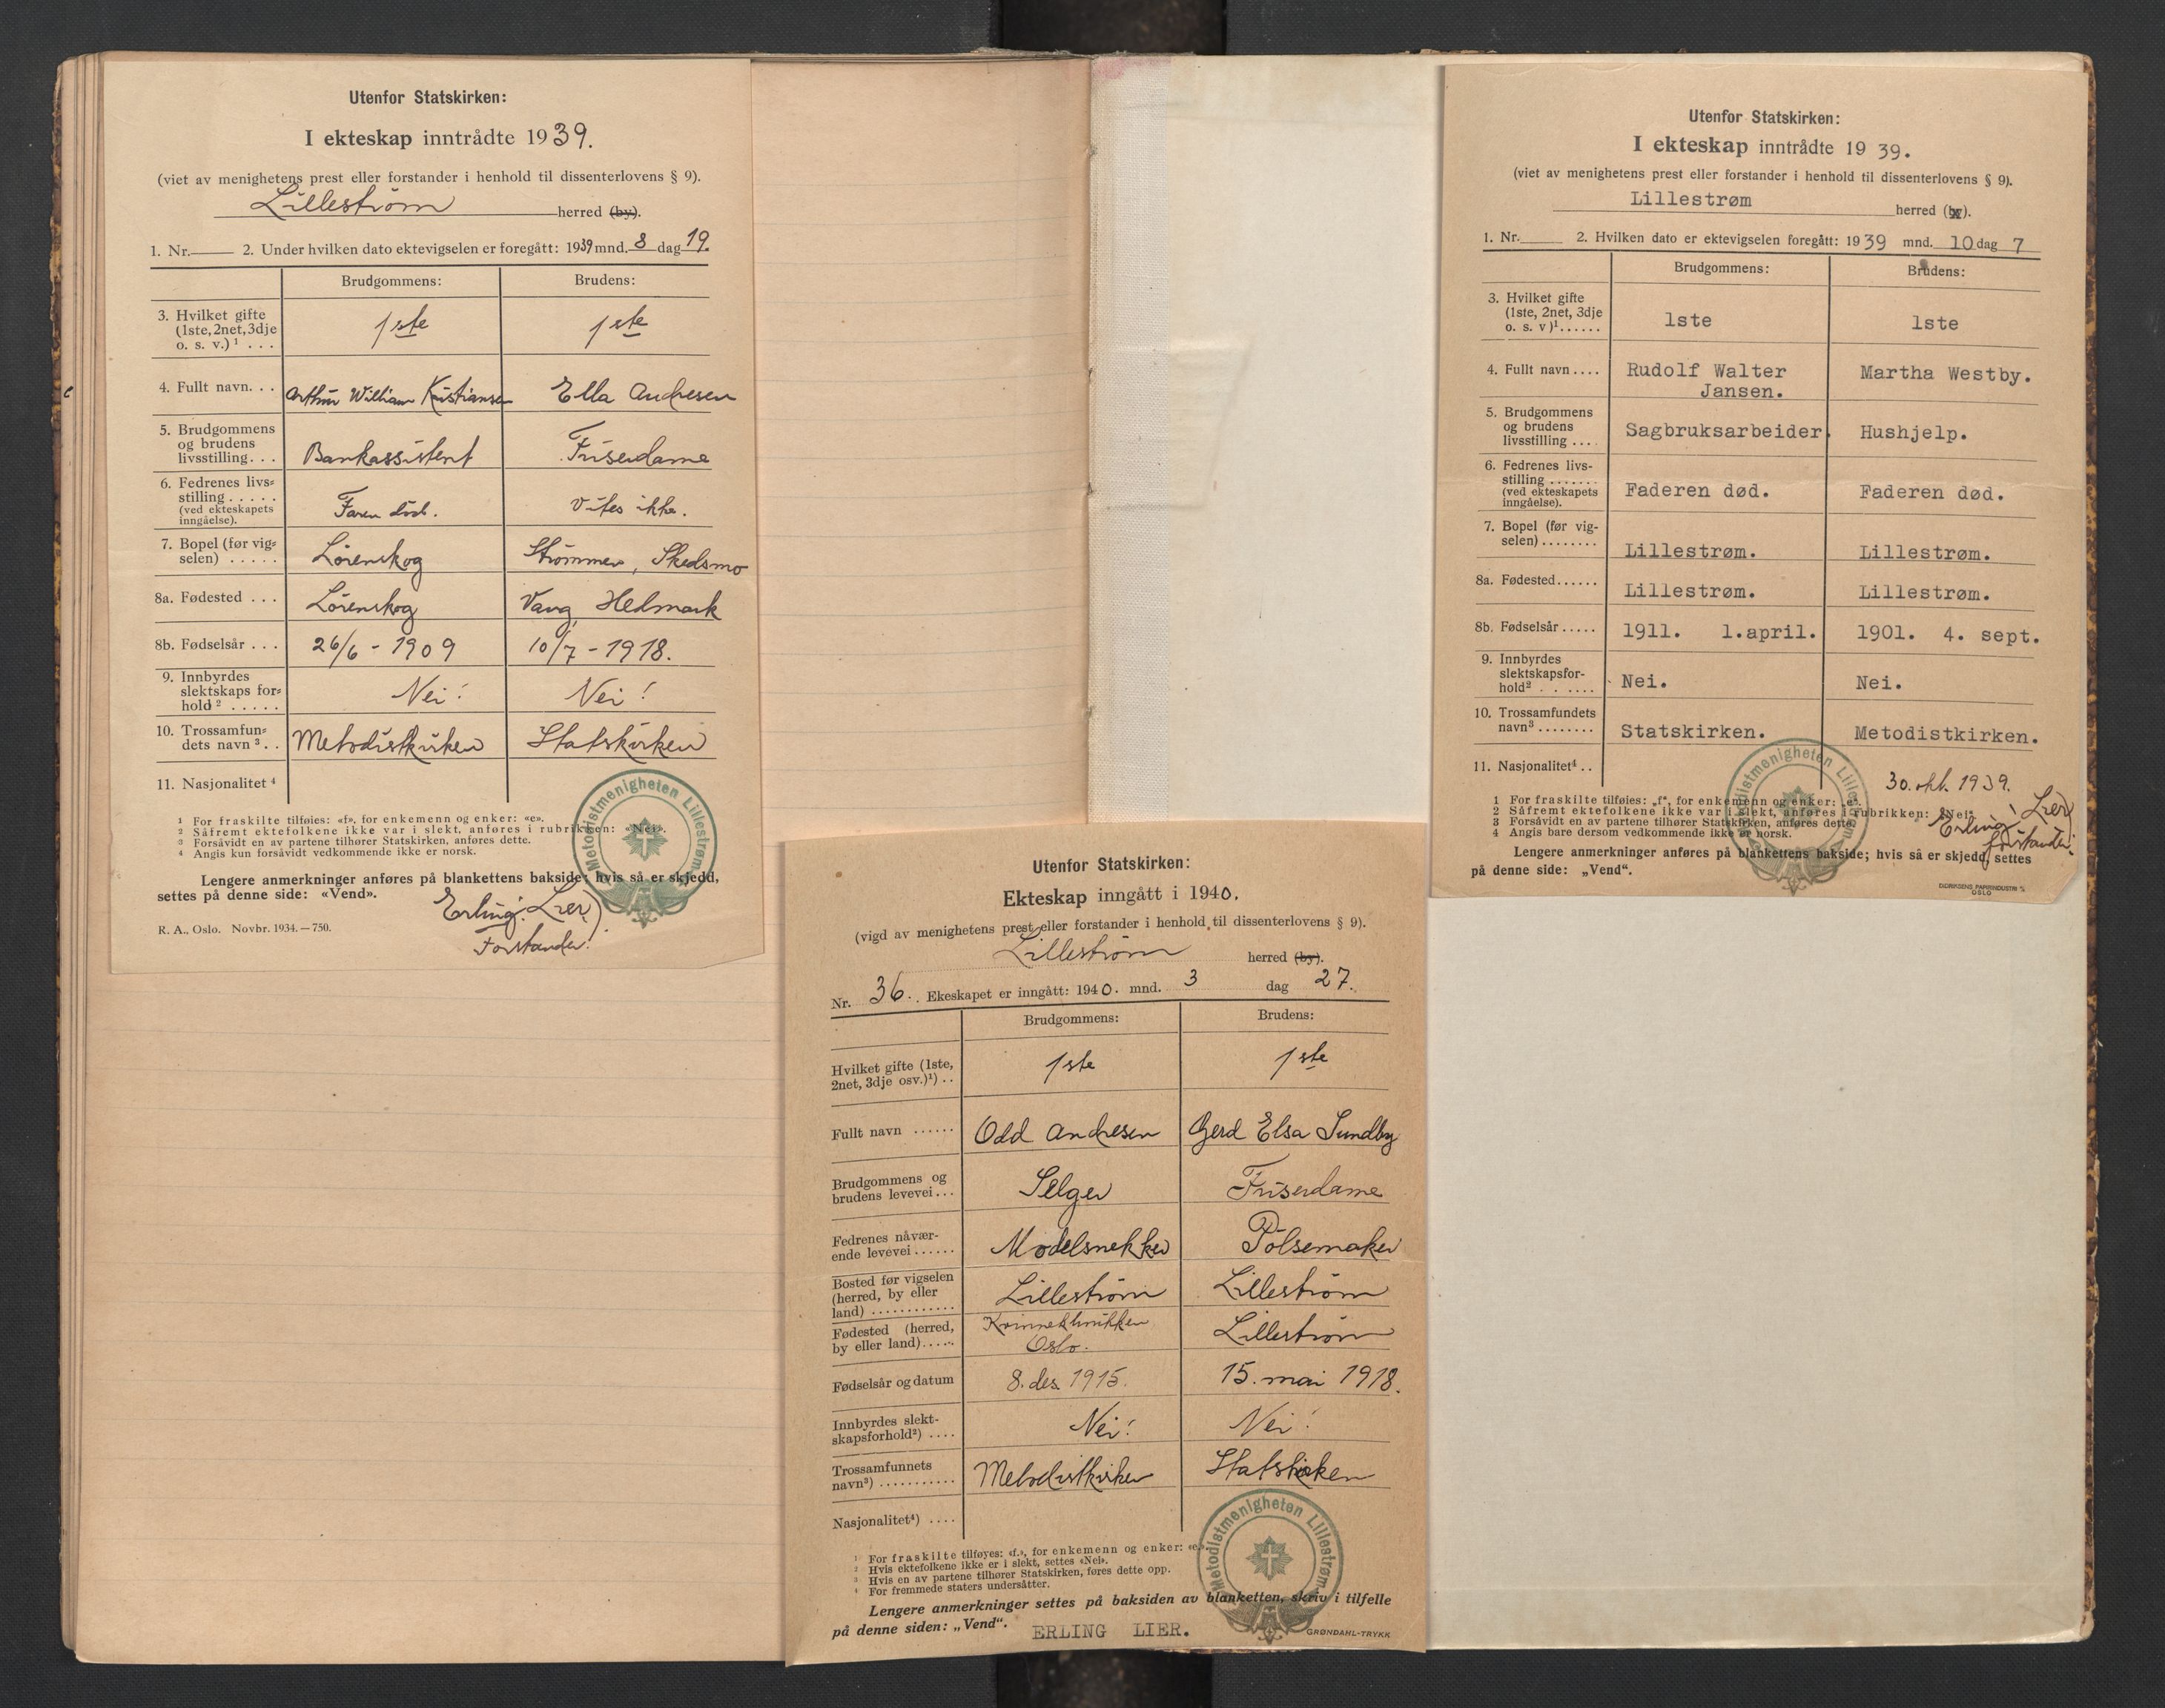 Utenfor Statskirken:
I ekteskap inntrådte 1939.
(viet av menighetens prest eller forstander i henhold til dissenterlovens § 9).
Lilleström herred (by).
1. Nr. 2. Under hvilken dato ektevigselen er foregått: 1939 mnd. 8 dag 19.
Brudgommens: Brudens:
3. Hvilket gifte
(1ste, 2net, 3dje 1ste 1ste
o. s. v.)¹ . . .
4. Fullt navn. . . Arthur William Kristiansen Ella Andresen
5. Brudgommens
og brudens
livsstilling. . . Bankassistent Friserdame
6. Fedrenes livs=
stilling . . . . .
(ved ekteskapets Faren död. Vites ikke.
inngåelse).
7. Bopel (før vig=
selen) . . . . . Lörenskog Strömmen, Skedsmo
8a. Fødested . . . Lörenskog Vang, Hedmark
8b. Fødselsår . . . 26/6 - 1909 10/7 - 1918.
9. Innbyrdes
slektskaps for= Nei! Nei!
hold ² . . . . .
10. Trossamfun=
dets navn ³ . . Metodistkirken Statskirken
11. Nasjonalitet ⁴
¹ For fraskilte tilføies: «f», for enkemenn og enker: «e».
² Såfremt ektefolkene ikke var i slekt, anføres i rubrikken: «Nei».
³ Forsåvidt en av partene tilhører Statskirken, anføres dette.
⁴ Angis kun forsåvidt vedkommende ikke er norsk.
Lengere anmerkninger anføres på blankettens bakside; hvis så er skjedd,
settes på denne side: «Vend».
Erling Lier
Forstander.
R. A., Oslo. Novbr. 1934.—750.
Metodistmenigheten Lillestrøm
Utenfor Statskirken:
Ekteskap inngått i 1940.
(vigd av menighetens prest eller forstander i henhold til dissenterlovens § 9).
Lilleström herred (by).
Nr. 36. Ekeskapet er inngått: 1940. mnd. 3 dag 27.
Brudgommens: Brudens:
Hvilket gifte (1ste,
2net, 3dje osv.)¹) . . 1ste 1ste
Fullt navn ...... Odd Andresen Gerd Elsa Sundby
Brudgommens og
brudens levevei... Selger Friserdame
Fedrenes nåvær-
ende levevei ...... Modelsnekker Pölsemaker
Bosted før vigselen
(herred, by eller Lilleström Lilleström
land) ............
Fødested (herred, Kvinneklinikken
by eller land)..... Oslo. Lilleström
Fødselsår og datum 8. des. 1915. 15. mai 1918.
Innbyrdes slekt-
skapsforhold²) .... Nei! Nei!
Trossamfunnets
navn³) ........... Metodistkirken Statskirken
Nasjonalitet⁴) ....
¹ For fraskilte tilføyes: «f.», for enkemenn og enker: «e.».
² Hvis ektefolkene ikke er i slekt, settes «Nei».
³ Hvis en av partene tilhører Statskirken, føres dette opp.
⁴ For fremmede staters undersåtter.
Lengere anmerkninger settes på baksiden av blanketten, skriv i tilfelle
på denne siden: „Vend“. ERLING LIER.
GRØNDAHL-TRYKK
Metodistmenigheten Lillestrøm
Utenfor Statskirken:
I ekteskap inntrådte 1939.
(viet av menighetens prest eller forstander i henhold til dissenterlovens § 9).
Lillestrøm herred (by).
1. Nr. 2. Hvilken dato er ektevigselen foregått: 1939 mnd. 10 dag 7
Brudgommens: Brudens:
3. Hvilket gifte
(1ste, 2net, 3dje 1ste 1ste
o. s. v )¹......
4. Fullt navn.... Rudolf Walter Martha Westby.
Jansen.
5. Brudgommens
og brudens Sagbruksarbeider. Hushjelp.
livsstilling ....
6. Fedrenes livs-
stilling .......
(ved ekteskapets Faderen død. Faderen død.
inngåelse).
7. Bopel (før vig-
selen)........ Lillestrøm. Lillestrøm.
8a. Fødested...... Lillestrøm. Lillestrøm.
8b. Fødselsår ..... 1911. 1.april. 1901. 4. sept.
9. Innbyrdes
slektskapsfor-
hold² . . ...... Nei. Nei.
10. Trossamfundets
navn³........ Statskirken. Metodistkirken.
11. Nasjonalitet⁴..
30. okt. 1939.
1 For fraskilte tilføies: „f“, for enkemenn og enker: „e“.
2 Såfremt ektefolkene ikke var i slekt, anføres i rubrikken: „Nei“.
3 Forsåvidt en av partene tilhører Statskirken, anføres dette.
4 Angis bare dersom vedkommende ikke er norsk.
Erling Lier
forstander.
Lengere anmerkninger anføres på blankettens bakside; hvis så er skjedd, settes
på denne side: „Vend“.
OSLO
Metodistmenigheten Lillestrøm